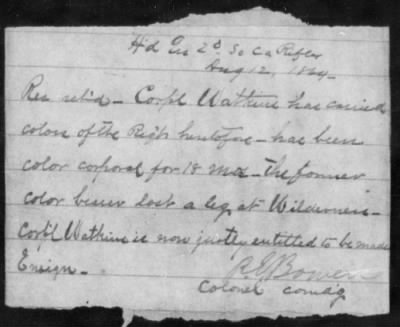 Hd Qrs 2d So Ca Rifles
Aug 12, 1864
Res ret'd - Corp'l Watkins has carried
colors of the Reg't heretofore - has been
color corporal for 18 mos - the former
color bearer lost a leg at Wilderness -
Corp'l Watkins is now justly entitled to be made
Ensign -
R E Bowen
Colonel comd'g